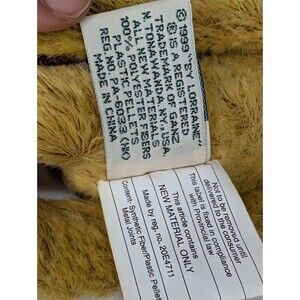 © 1999 "BY LORRAINE"
® IS A REGISTERED
TRADEMARK OF GANZ
N. TONAWANDA, NY, USA.
ALL NEW MATERIAL
100% POLYESTER FIBERS
PLASTIC PELLETS
REG. NO PA-6033 (HK)
MADE IN CHINA
Not to be removed until
delivered to the consumer
This label is affixed in compliance
with provincial law
This article contains
NEW MATERIAL ONLY
Made by reg. no. 20E4711
Content: Synthetic Fiber/Plastic Pellets
Metal Joints